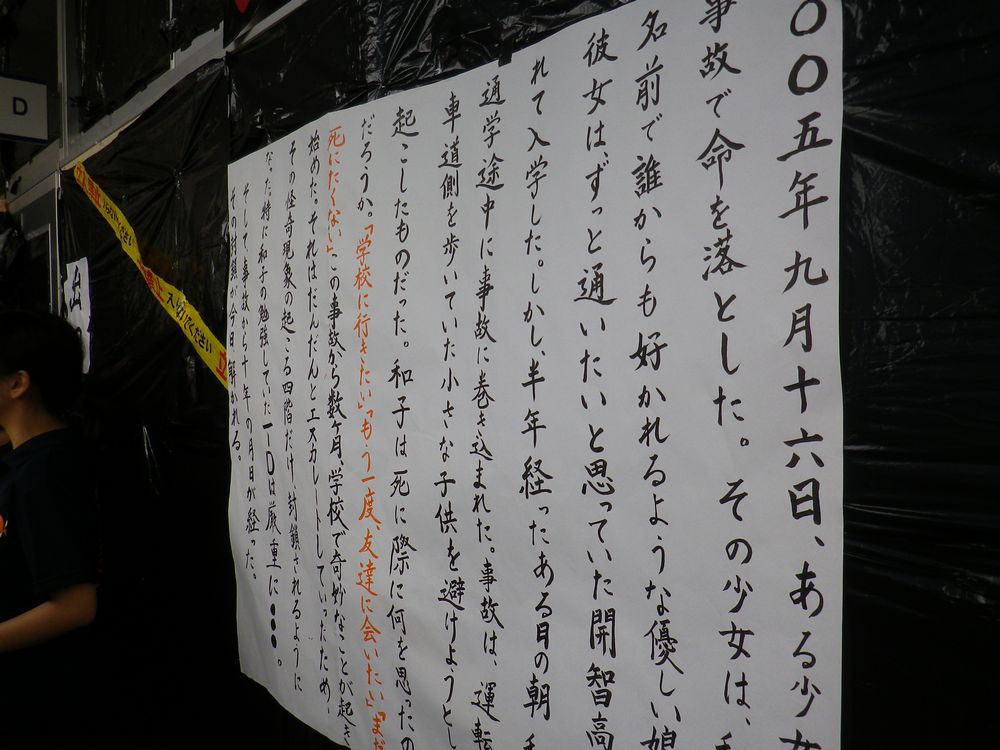 〇〇五年九月十六日、ある少女
事故で命を落とした。その少女は、
名前で誰からも好かれるような優しい娘
彼女はずっと通いたいと思っていた開智高
れて入学した。しかし、半年経ったある日の朝
通学途中に事故に巻き込まれた。事故は、運転
車道側を歩いていた小さな子供を避けようとし
起こしたものだった。和子は死に際に何を思ったの
だろうか。「学校に行きたい」「もう一度、友達に会いたい」「まだ
死にたくない」この事故から数ヶ月、学校で奇妙なことが起き
始めた。それはだんだんとエスカレートしていったため、
その怪奇現象の起こる四階だけ、封鎖されるように
なった。特に和子の勉強していた一ーDは厳重に●●●。
そして、事故から十年の月日が経った。
その封鎖が今日、解かれる。
D
入らないでください